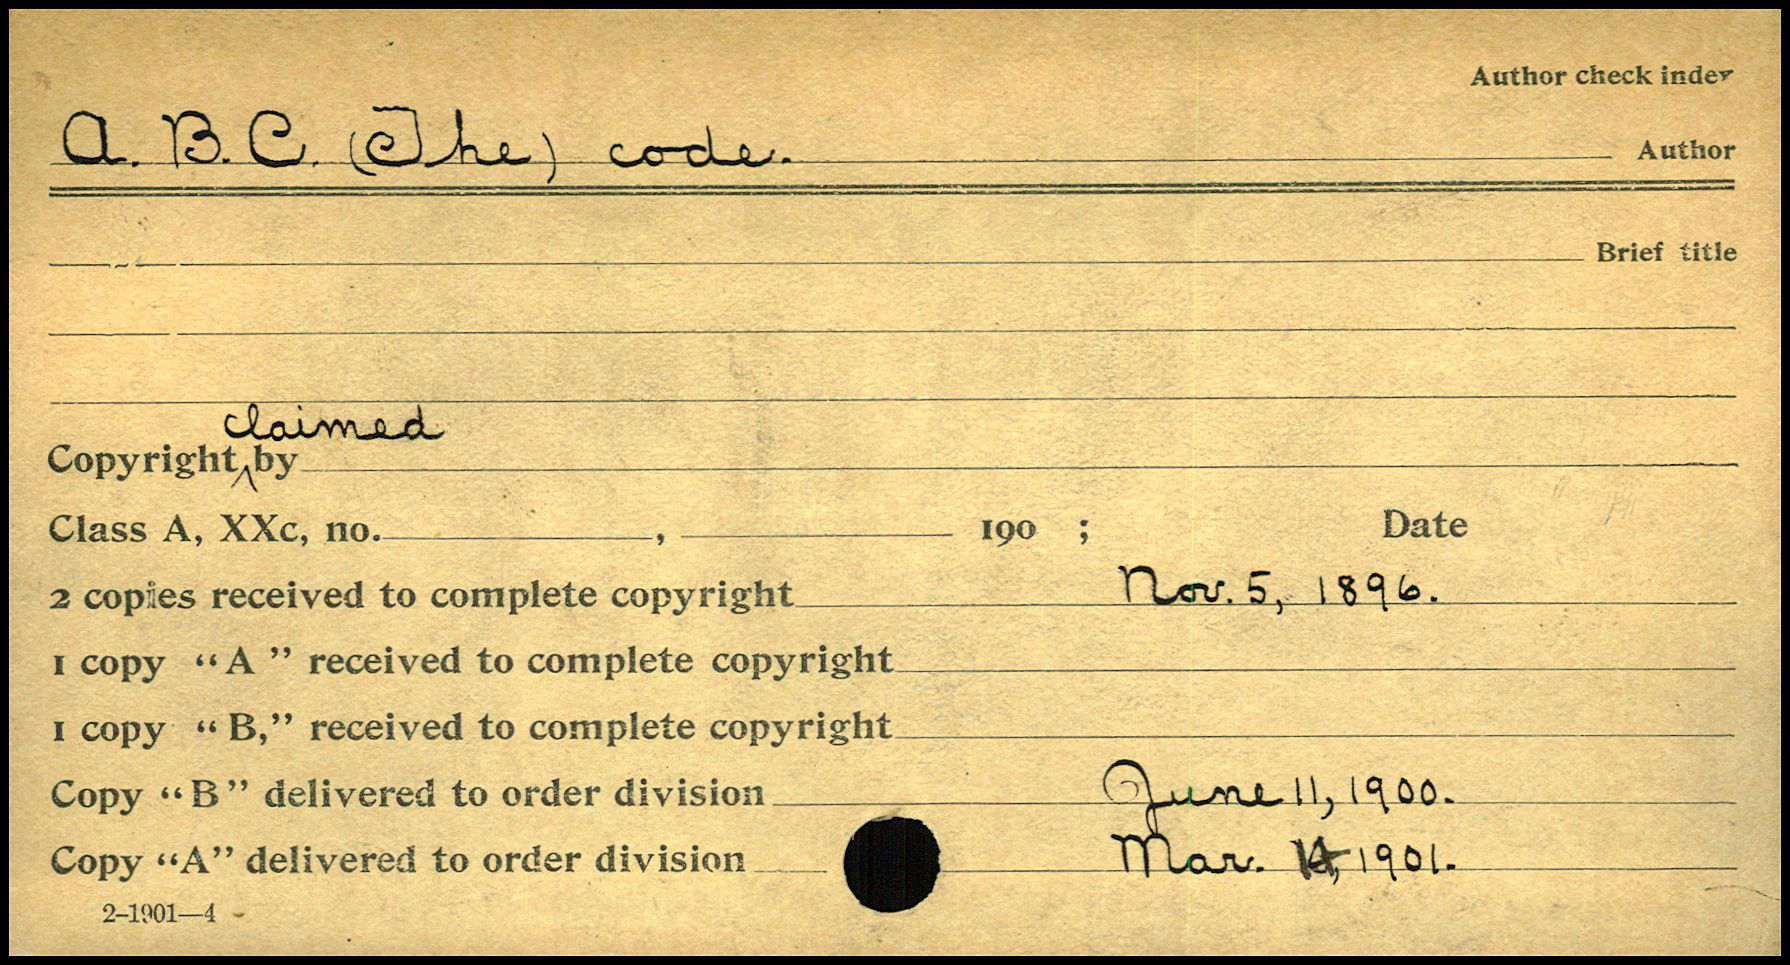 Author check index
A. B. C. (The) code. Author
Brief title
claimed
Copyright ^ by
Class A, XXc, no. , 190 ; Date
2 copies received to complete copyright Nov. 5, 1896.
1 copy "A" received to complete copyright
1 copy "B," received to complete copyright
Copy "B" delivered to order division June 11, 1900.
Copy "A" delivered to order division Mar. 14, 1901.
2-1901—4